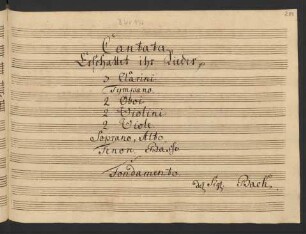 Cantata
Erschallet ihr Lieder,
3 Clarini
Tympano
2 Oboi
2 Violini
2 Viole
Soprano, Alto
Tenor Basso
Fondamento
del Sigr. Bach.